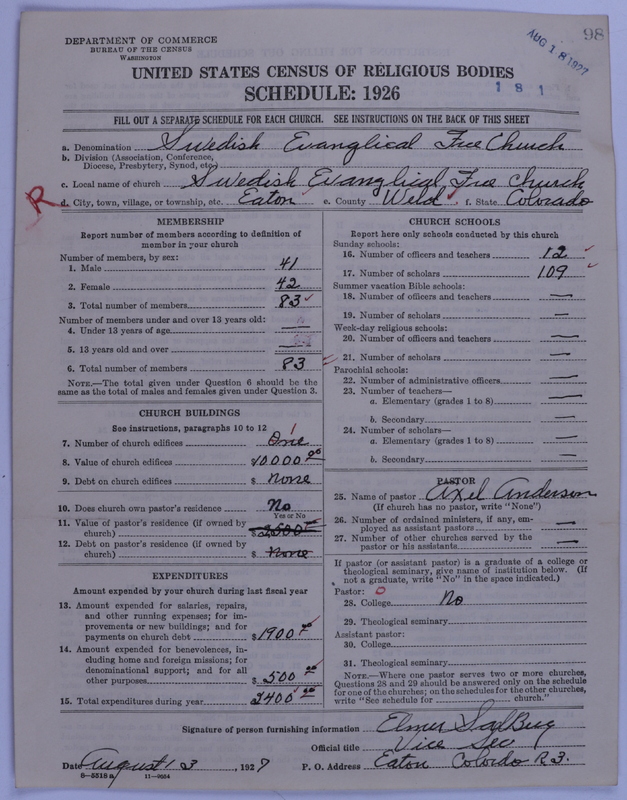 98
DEPARTMENT OF COMMERCE
BUREAU OF THE CENSUS
WASHINGTON
AUG 18 1927
UNITED STATES CENSUS OF RELIGIOUS BODIES
1 8 1
SCHEDULE: 1926
FILL OUT A SEPARATE SCHEDULE FOR EACH CHURCH. SEE INSTRUCTIONS ON THE BACK OF THIS SHEET
a. Denomination Swedish Evanglical Free Church
b. Division (Association, Conference,
Diocese, Presbytery, Synod, etc.)
c. Local name of church Swedish Evanglical Free Church
R d. City, town, village, or township, etc. Eaton e. County Weld f. State Colorado
MEMBERSHIP
Report number of members according to definition of
member in your church
Number of members, by sex:
1. Male 41
2. Female 42
3. Total number of members 83
Number of members under and over 13 years old:
4. Under 13 years of age —
5. 13 years old and over —
6. Total number of members 83
NOTE.—The total given under Question 6 should be the
same as the total of males and females given under Question 3.
CHURCH BUILDINGS
See instructions, paragraphs 10 to 12
7. Number of church edifices One 1
8. Value of church edifices $10000.00
9. Debt on church edifices $ None
10. Does church own pastor's residence No
Yes or No
11. Value of pastor's residence (if owned by
church) $ 2500.00
12. Debt on pastor's residence (if owned by
church) $ None
EXPENDITURES
Amount expended by your church during last fiscal year
13. Amount expended for salaries, repairs,
and other running expenses; for im-
provements or new buildings; and for
payments on church debt $ 1900.00
14. Amount expended for benevolences, in-
cluding home and foreign missions; for
denominational support; and for all
other purposes $ 500.00
15. Total expenditures during year 2400.00
CHURCH SCHOOLS
Report here only schools conducted by this church
Sunday schools:
16. Number of officers and teachers 12
17. Number of scholars 109
Summer vacation Bible schools:
18. Number of officers and teachers —
19. Number of scholars —
Week-day religious schools:
20. Number of officers and teachers —
21. Number of scholars —
Parochial schools:
22. Number of administrative officers —
23. Number of teachers—
a. Elementary (grades 1 to 8) —
b. Secondary —
24. Number of scholars—
a. Elementary (grades 1 to 8) —
b. Secondary —
PASTOR
25. Name of pastor Axel Anderson
(If church has no pastor, write "None")
26. Number of ordained ministers, if any, em-
ployed as assistant pastors —
27. Number of other churches served by the
pastor or his assistants —
If pastor (or assistant pastor) is a graduate of a college or
theological seminary, give name of institution below. (If
not a graduate, write "No" in the space indicated.)
Pastor: 0
28. College No
29. Theological seminary
Assistant pastor:
30. College
31. Theological seminary
NOTE.—Where one pastor serves two or more churches,
Questions 28 and 29 should be answered only on the schedule
for one of the churches; on the schedules for the other churches,
write "See schedule for church."
Signature of person furnishing information Elmer
Official title Vice Sec
Date August 13, 1927 P. O. Address Eaton Colordo R3.
8—5518a 11—9064